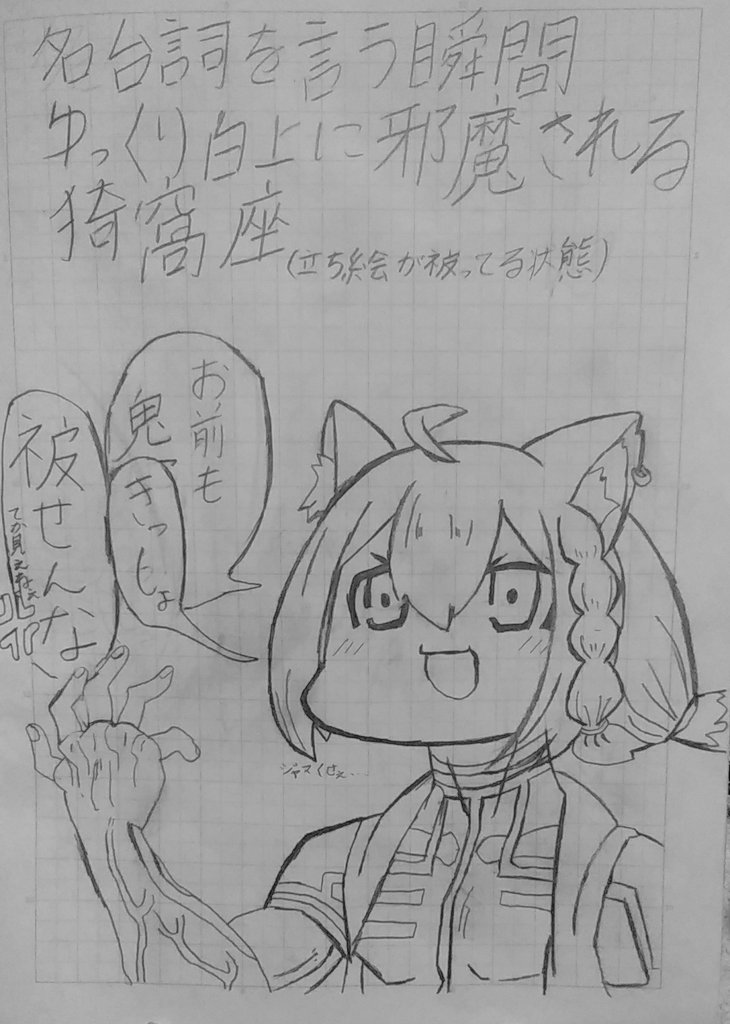 名台詞を言う瞬間
ゆっくり白上に邪魔される
猗窩座(立ち絵が被ってる状態)
お前も
鬼
きっしょ
被せんな
てか見えねぇ
ジャマくせぇ...